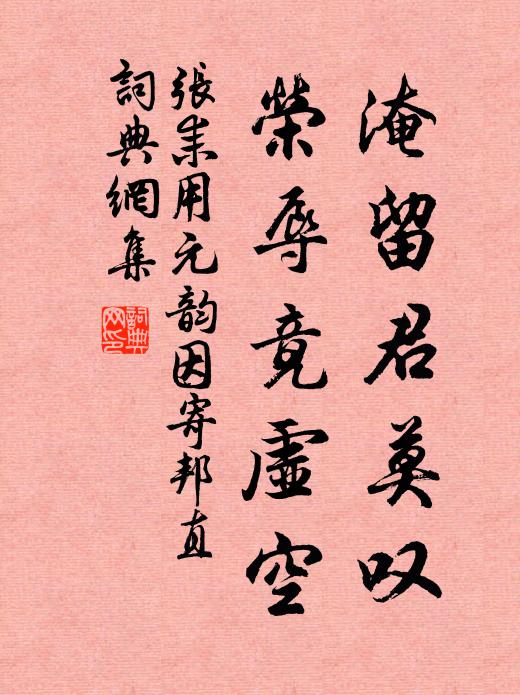 淹留君莫叹
荣辱竟虚空
張耒用元韵因寄邦直
詞典網集
詞典
网印